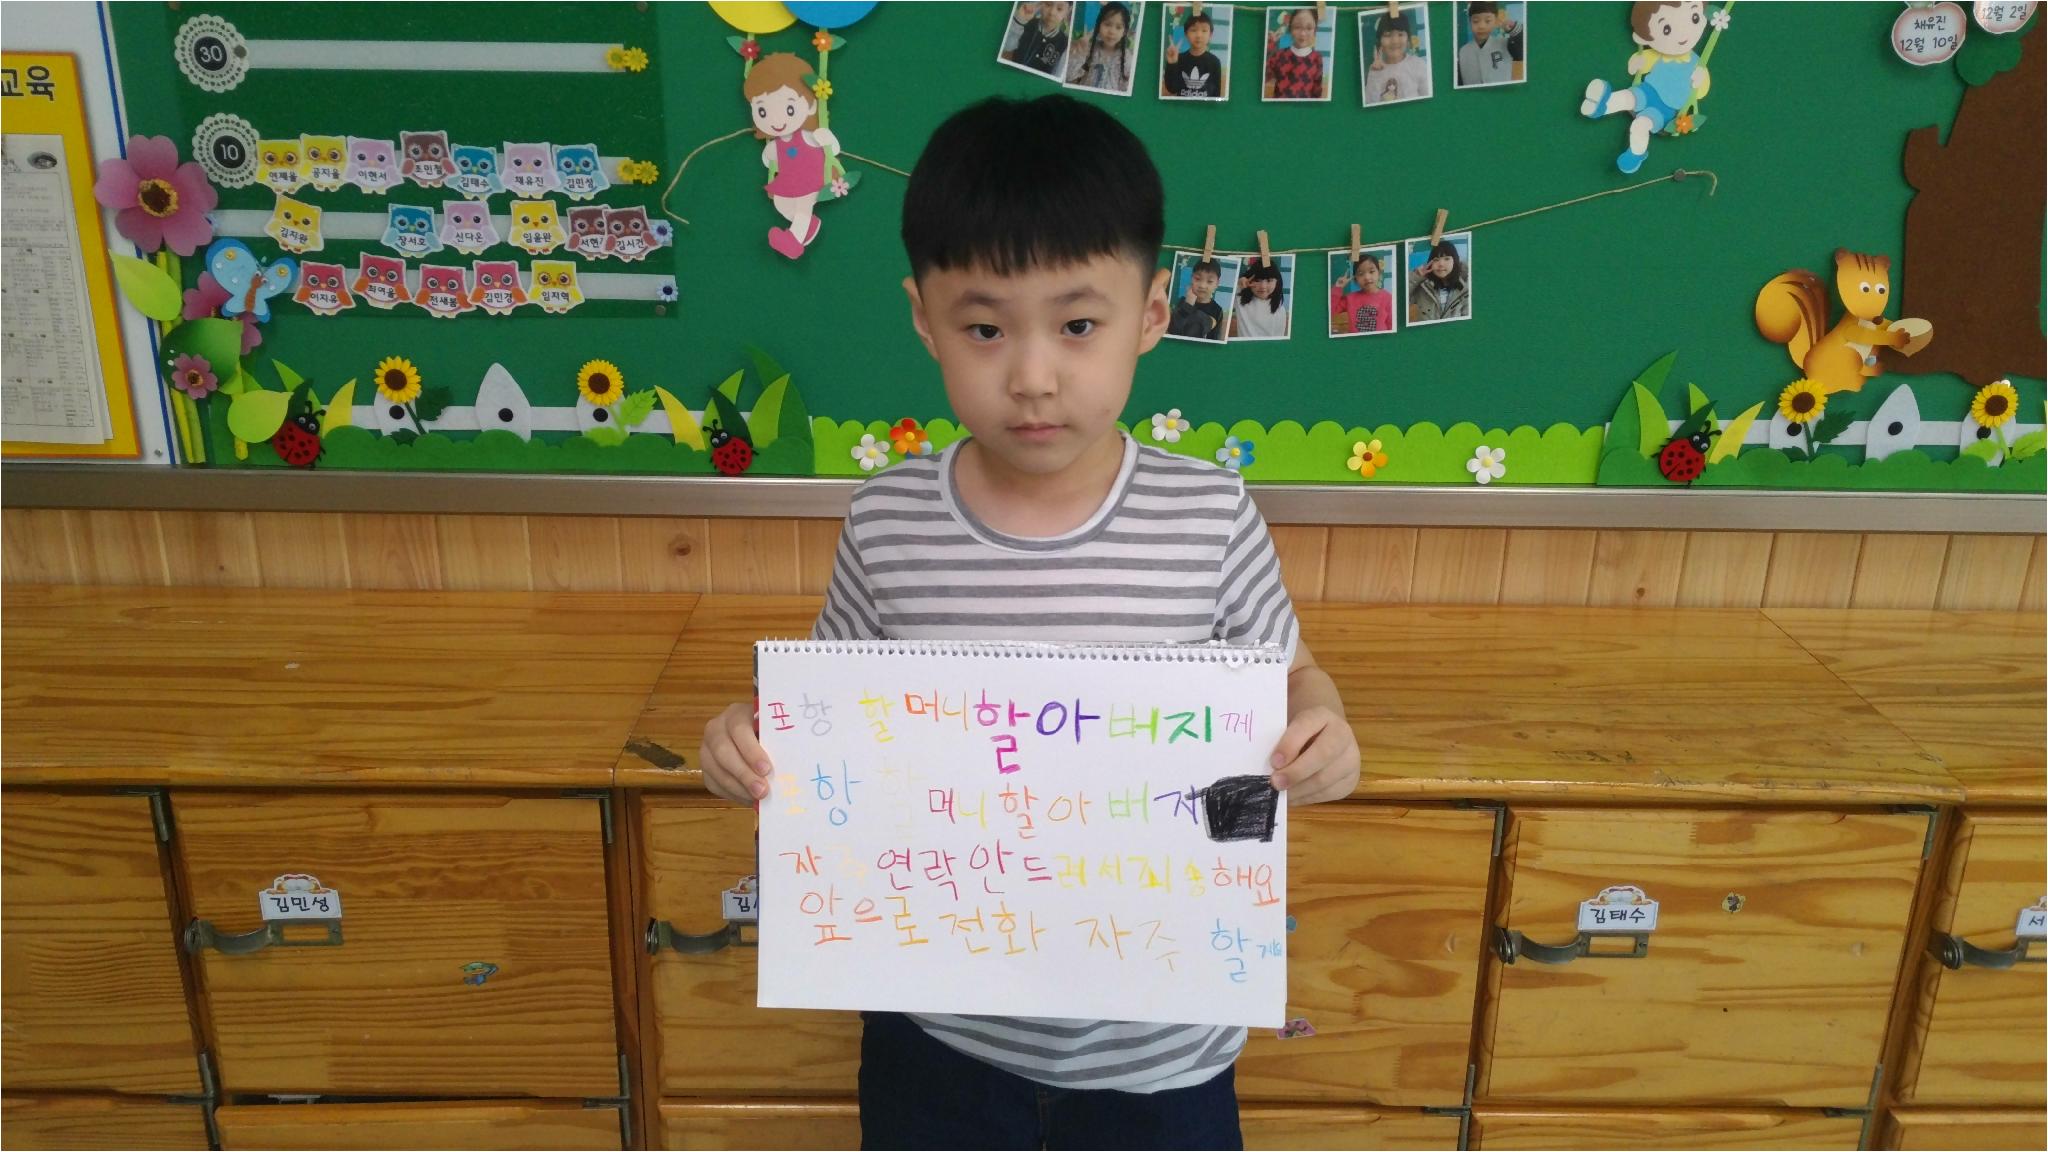 교육
30
10
연제율 공지율 이현서 조민철 김태수 채유진 김민성
김지완 장서호 신다온 임율완 서현 김시건
이지유 최여율 전새봄 김민경 임지혁
채유진
12월 10일
12월 2일
adidas
P
포항 할머니할아버지께
포항 할머니할아버지
자주 연락 안드려서죄송해요
앞으로 전화 자주 할게요
김민성
김태수
서